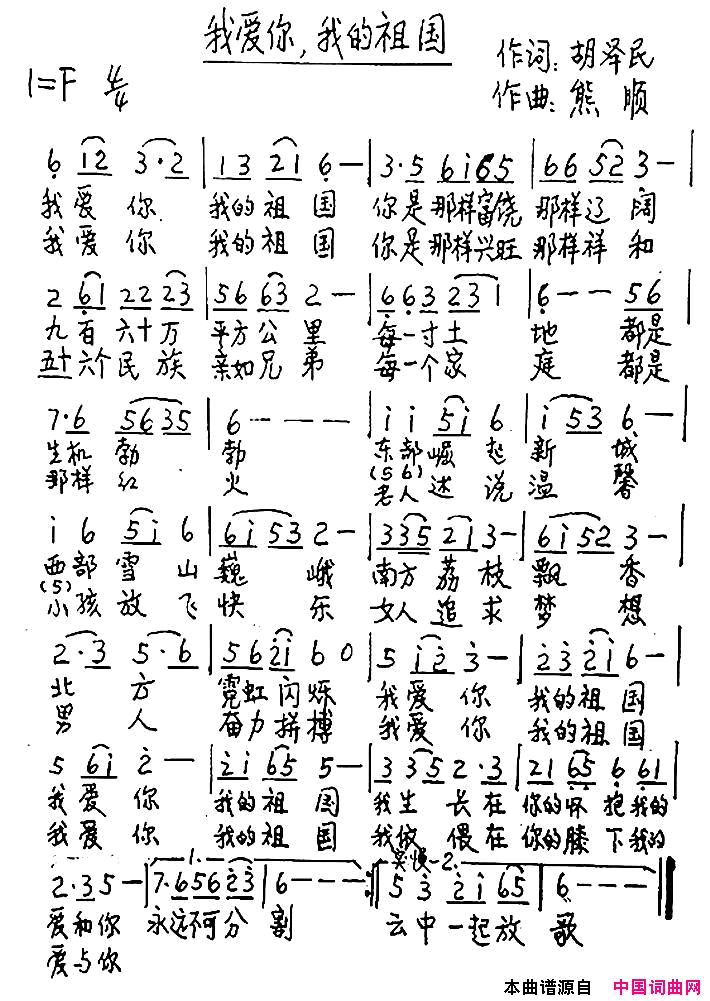 我爱你,我的祖国
1=F 4/4
作词:胡泽民
作曲:熊顺
6 12 3·2 | 13 21 6— | 3·5 6i65 | 66 52 3— |
我爱你 我的祖国 你是那样富饶 那样辽阔
我爱你 我的祖国 你是那样兴旺 那样祥和
2 61 22 23 | 56 63 2— | 663 231 | 6—— 56
九百六十万 平方公里 每一寸土地 都是
五十六个民族 亲如兄弟 每一个家庭 都是
7·6 5635 | 6——— | i i 5i 6 | i 53 6— |
生机勃勃 东部崛起新城
(56)
那样红火 老人述说温馨
i 6 5i 6 | 6i53 2— | 335 21 3— | 6i52 3— |
西部雪山巍峨 南方荔枝飘香
(5)
小孩放飞快乐 女人追求梦想
2·3 5·6 | 56 2i 60 | 5 i2 3— | 23 2i 6— |
北方 霓虹闪烁 我爱你 我的祖国
男人 奋力拼搏 我爱你 我的祖国
5 6i 2— | 2i 65 5— | 3 35 2·3 | 21 65 6 61 |
我爱你 我的祖国 我生长在你的怀抱 我的
我爱你 我的祖国 我依偎在你的膝下 我的
1. 突慢 2.
2·35— | 7·656 23 | 6——— :| 5 3 2i 65 | 6——— ‖
爱和你 永远不可分割 云中一起放歌
爱与你
本曲谱源自 中国词曲网